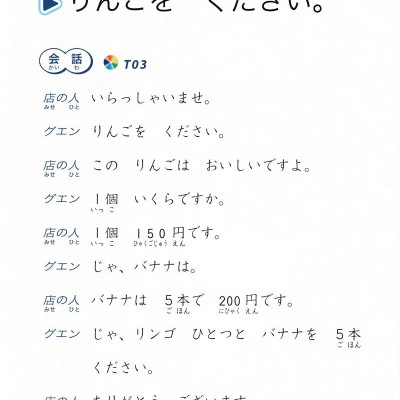 りんごを　ください。
会話
かい わ
T03
店の人　いらっしゃいませ。
みせ ひと
グエン　りんごを　ください。
店の人　この　りんごは　おいしいですよ。
みせ ひと
グエン　1個　いくらですか。
いっ こ
店の人　1個　150円です。
みせ ひと いっ こ ひゃくごじゅう えん
グエン　じゃ、バナナは。
店の人　バナナは　5本で　200円です。
みせ ひと ご ほん にひゃく えん
グエン　じゃ、リンゴ　ひとつと　バナナを　5本
ご ほん
ください。
店の人　ありがとう　ございます